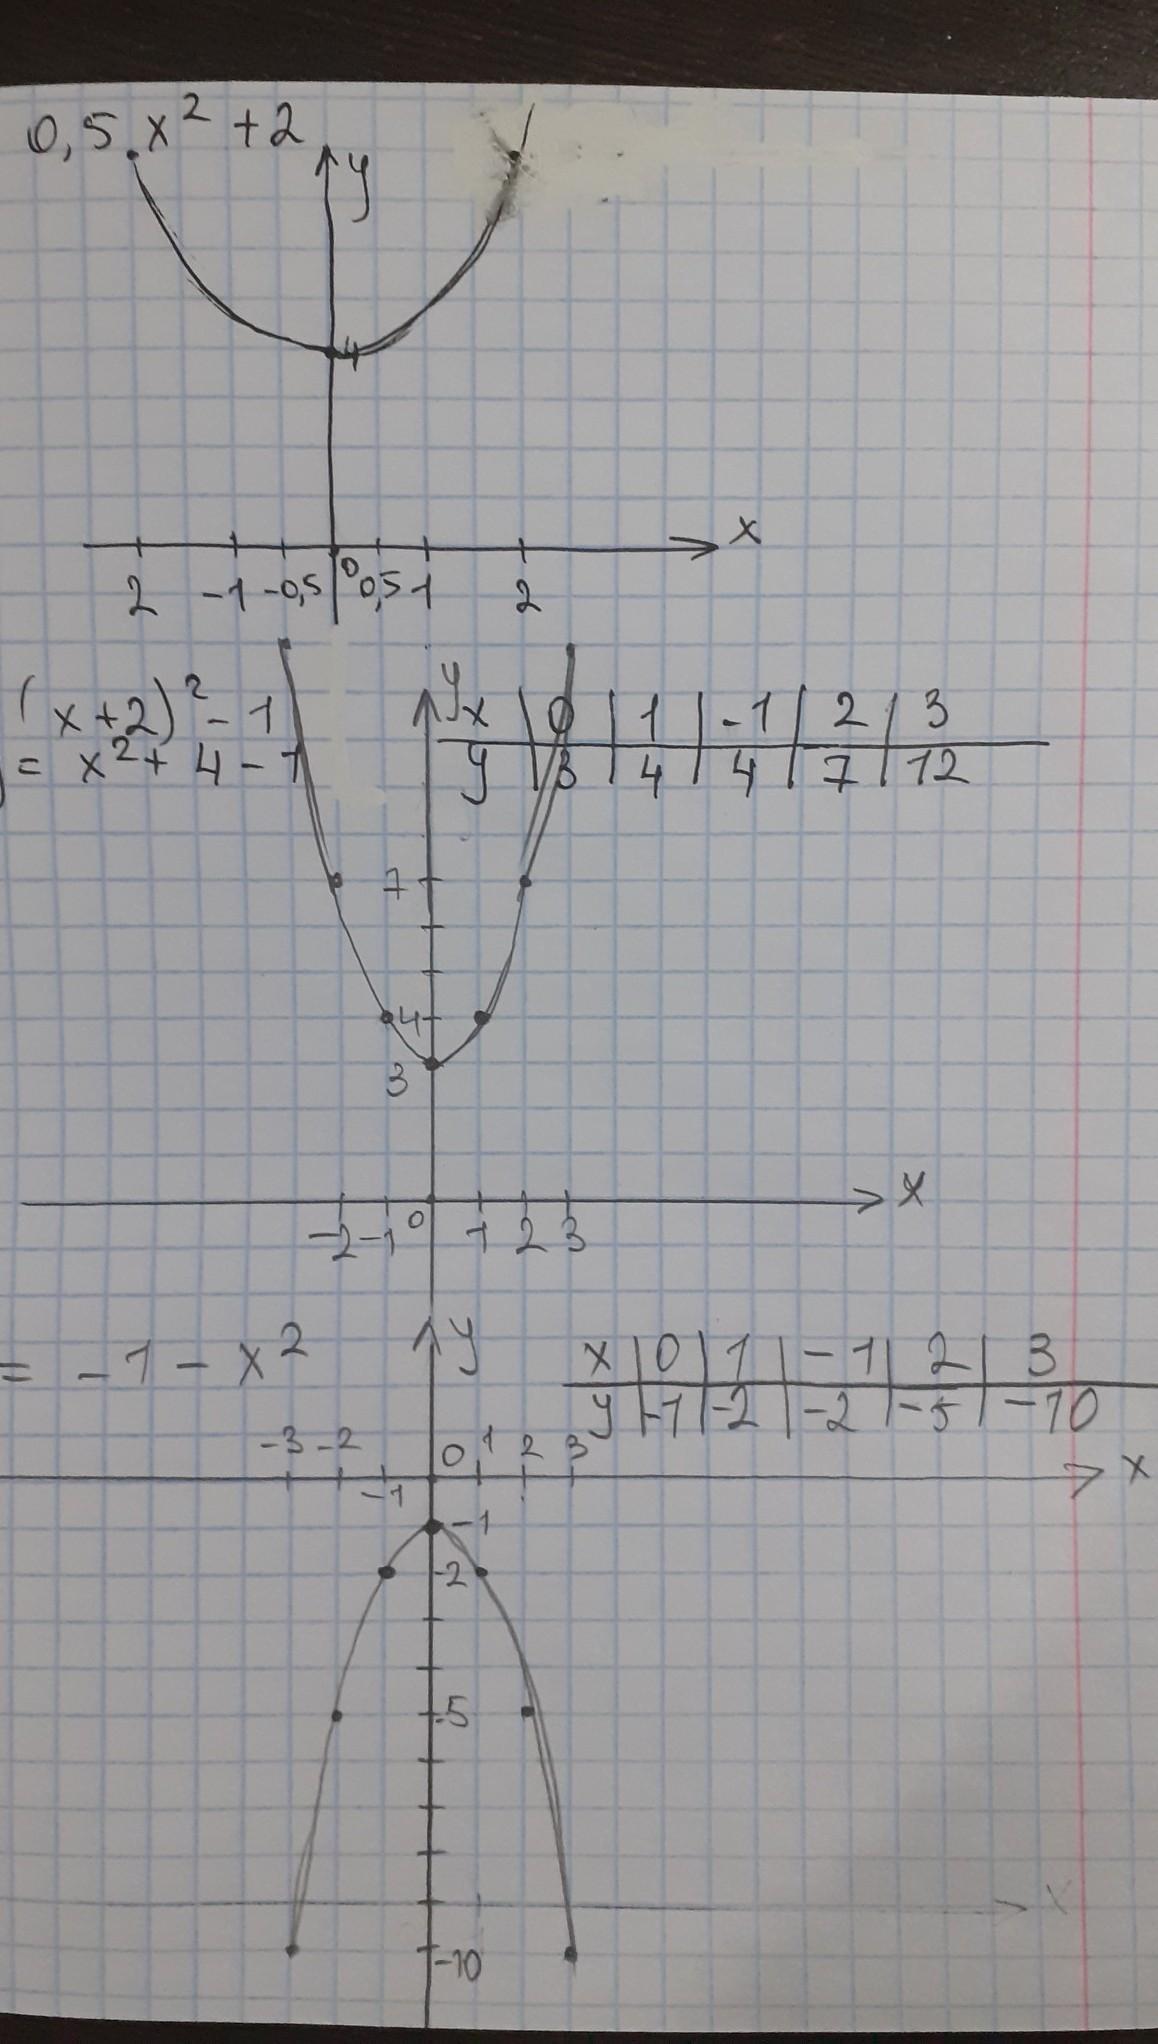 0,5 x² + 2
y
4
x
0
2 -1 -0,5 0,5 1 2
y
(x+2)² - 1
= x² + 4 - 1
x | 0 | 1 | -1 | 2 | 3
y | 3 | 4 | 4 | 7 | 12
7
4
3
x
0
-2 -1 1 2 3
y
= -1 - x²
x | 0 | 1 | -1 | 2 | 3
y | -1 | -2 | -2 | -5 | -10
-3 -2 -1 0 1 2 3
x
-1
-2
-5
x
-10